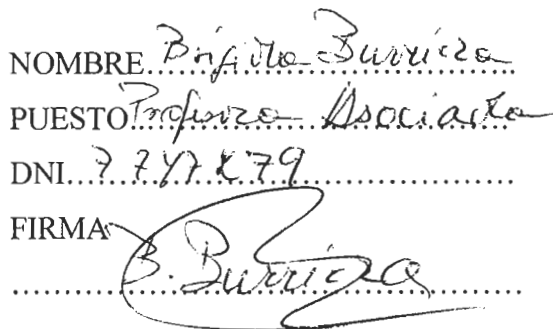 NOMBRE Brigitta Burricza
PUESTO Profesora Asociada
DNI
FIRMA
B. Burricza